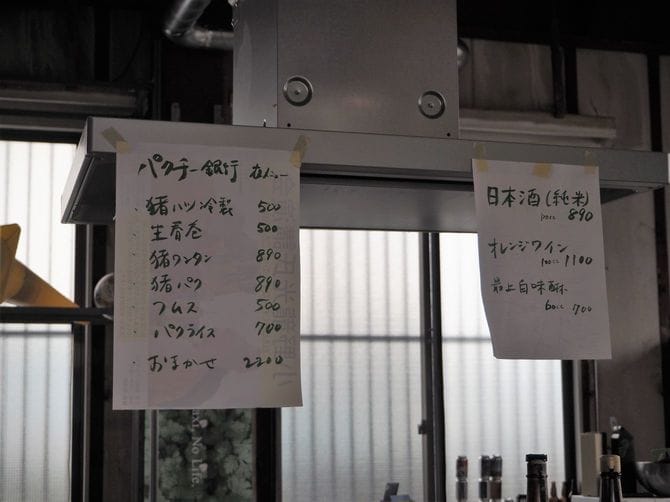 パクチー銀行 夜メニュー
・猪ハツ冷製 500
生春巻 500
・猪ワンタン 890
・猪パク 890
・フムス 500
・パクライス 700
・おまかせ 2200
日本酒(純米)
100cc 890
オレンジワイン
100cc 1100
最上白味醂
60cc 700
No Life